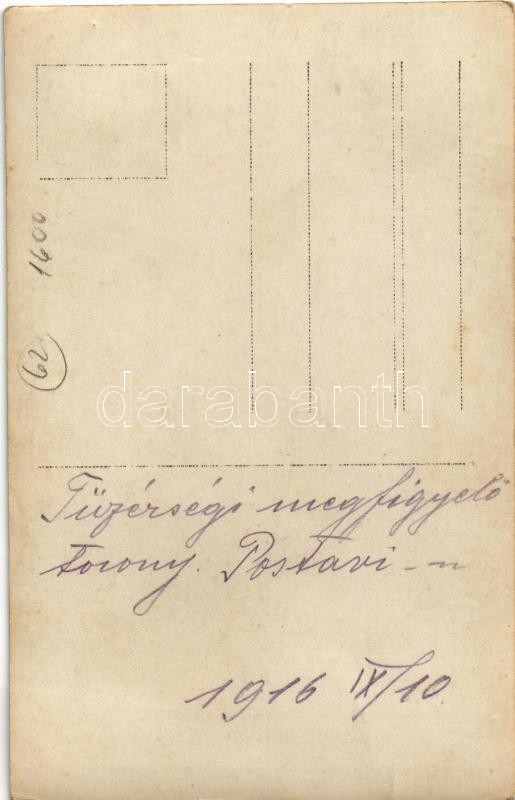 1600
62
darabanth
Tüzérségi megfigyelő
torony. Postavi-n
1916 IX/10.